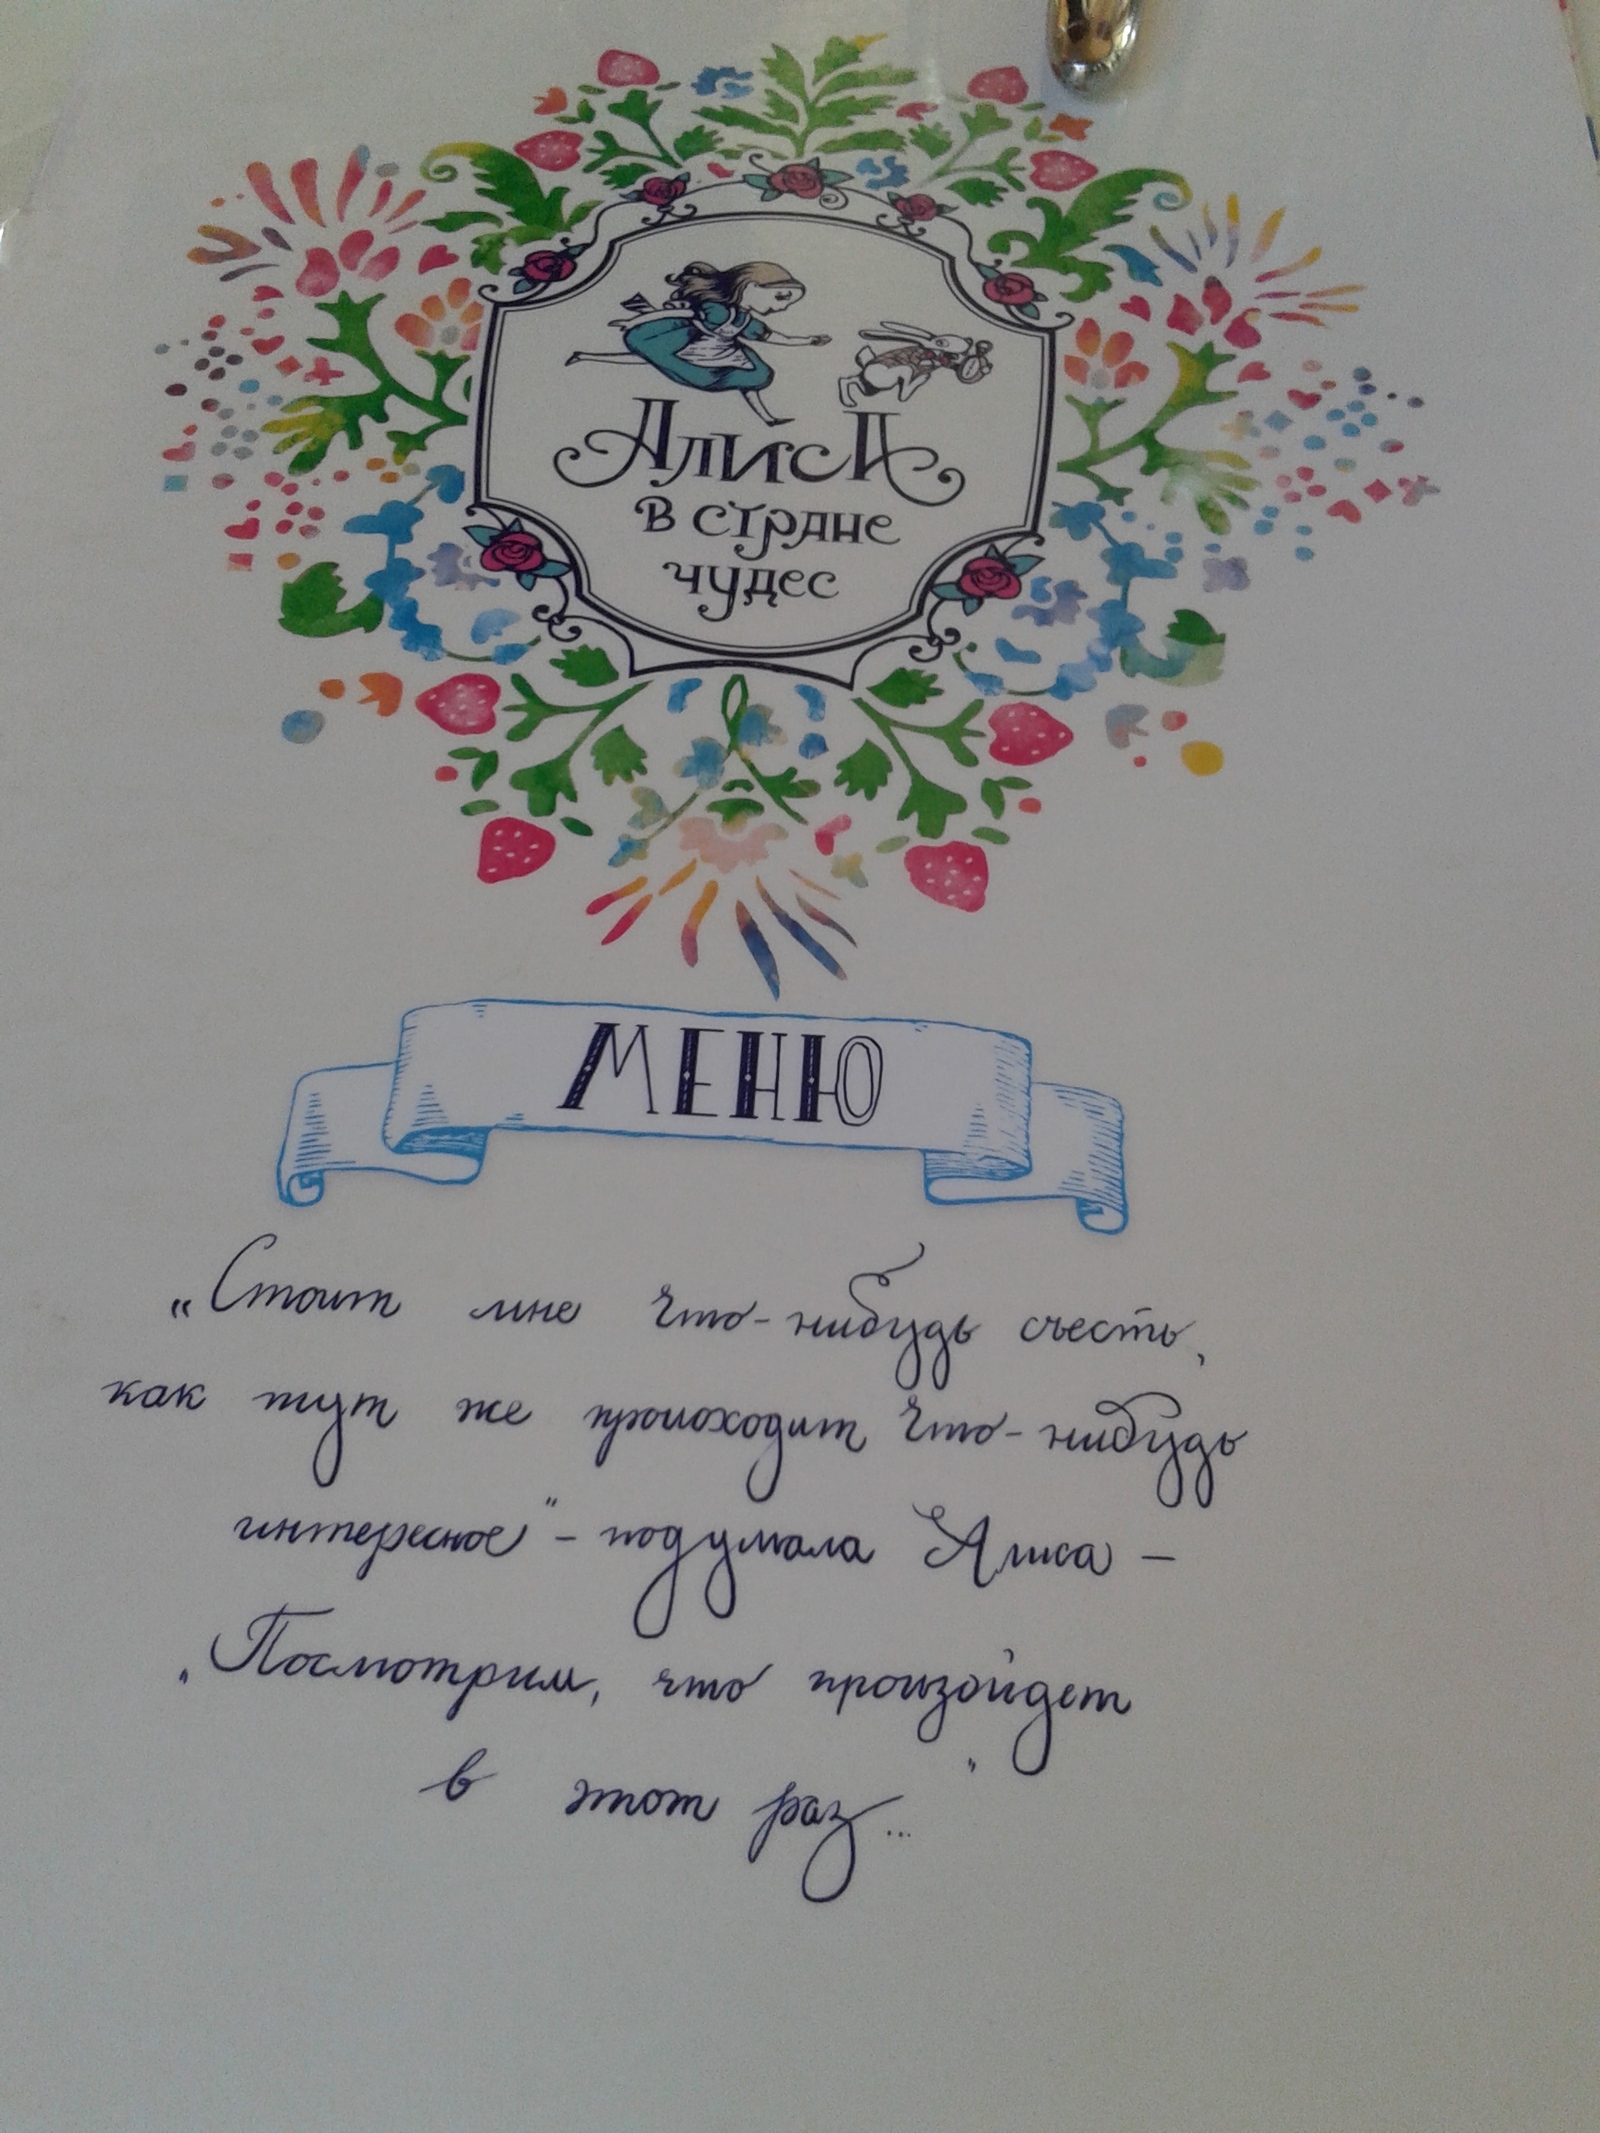 Алиса
в стране
чудес
МЕНЮ
„Стоит мне что-нибудь съесть,
как тут же происходит что-нибудь
интересное" – подумала Алиса –
„Посмотрим, что произойдет
в этот раз..."